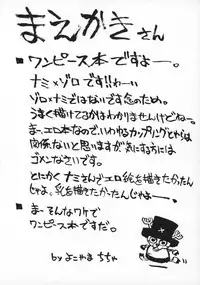 まえがきさん
■ワンピース本ですよー。
ナミ×ゾロです!!わーい
ゾロ×ナミではないです念のため。
うまく描けてるかはわかりませんけどねー。
まーエロ本なので、いわゆるカップリングとやらは
関係ないと思いますが気にする方には
ゴメンなさいです。
とにかくナミさんがエロ絵を描きたかった
んじゃよ。乳を描きたかったんじゃよー
■まーそんなワケで
ワンピース本ですだ。
by よこやま ちちゃ